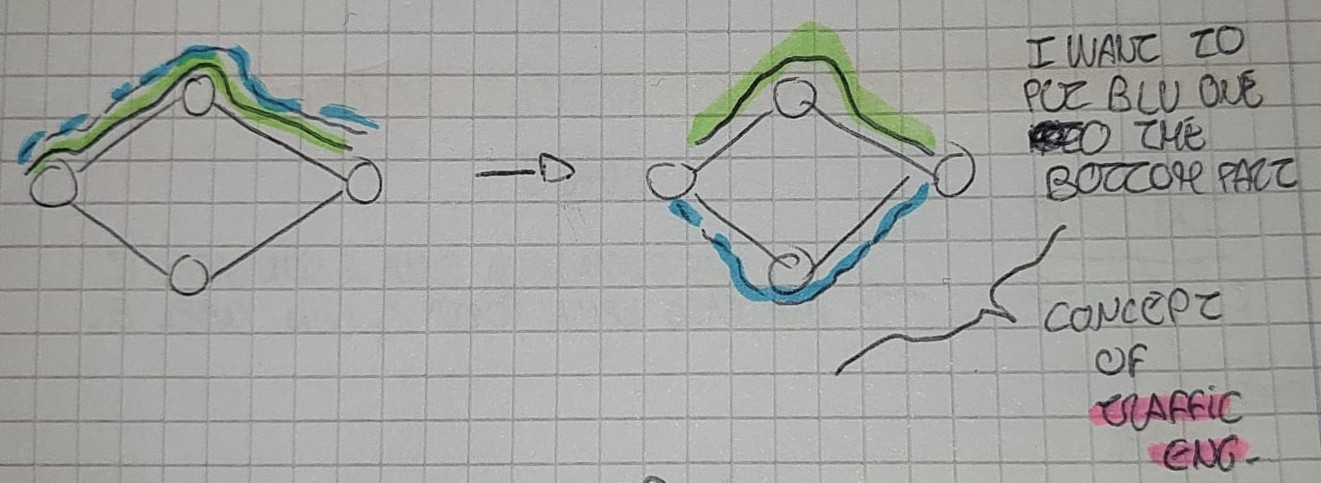 I WANT TO
PUT BLU ONE
TO THE
BOTTOM PART
CONCEPT
OF
TRAFFIC
ENG.